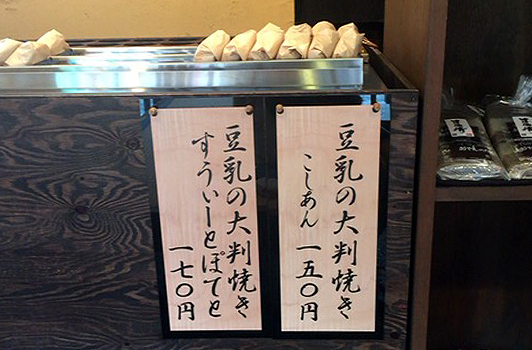 豆乳の大判焼き
こしあん 一五〇円
豆乳の大判焼き
すういーとぽてと
一七〇円